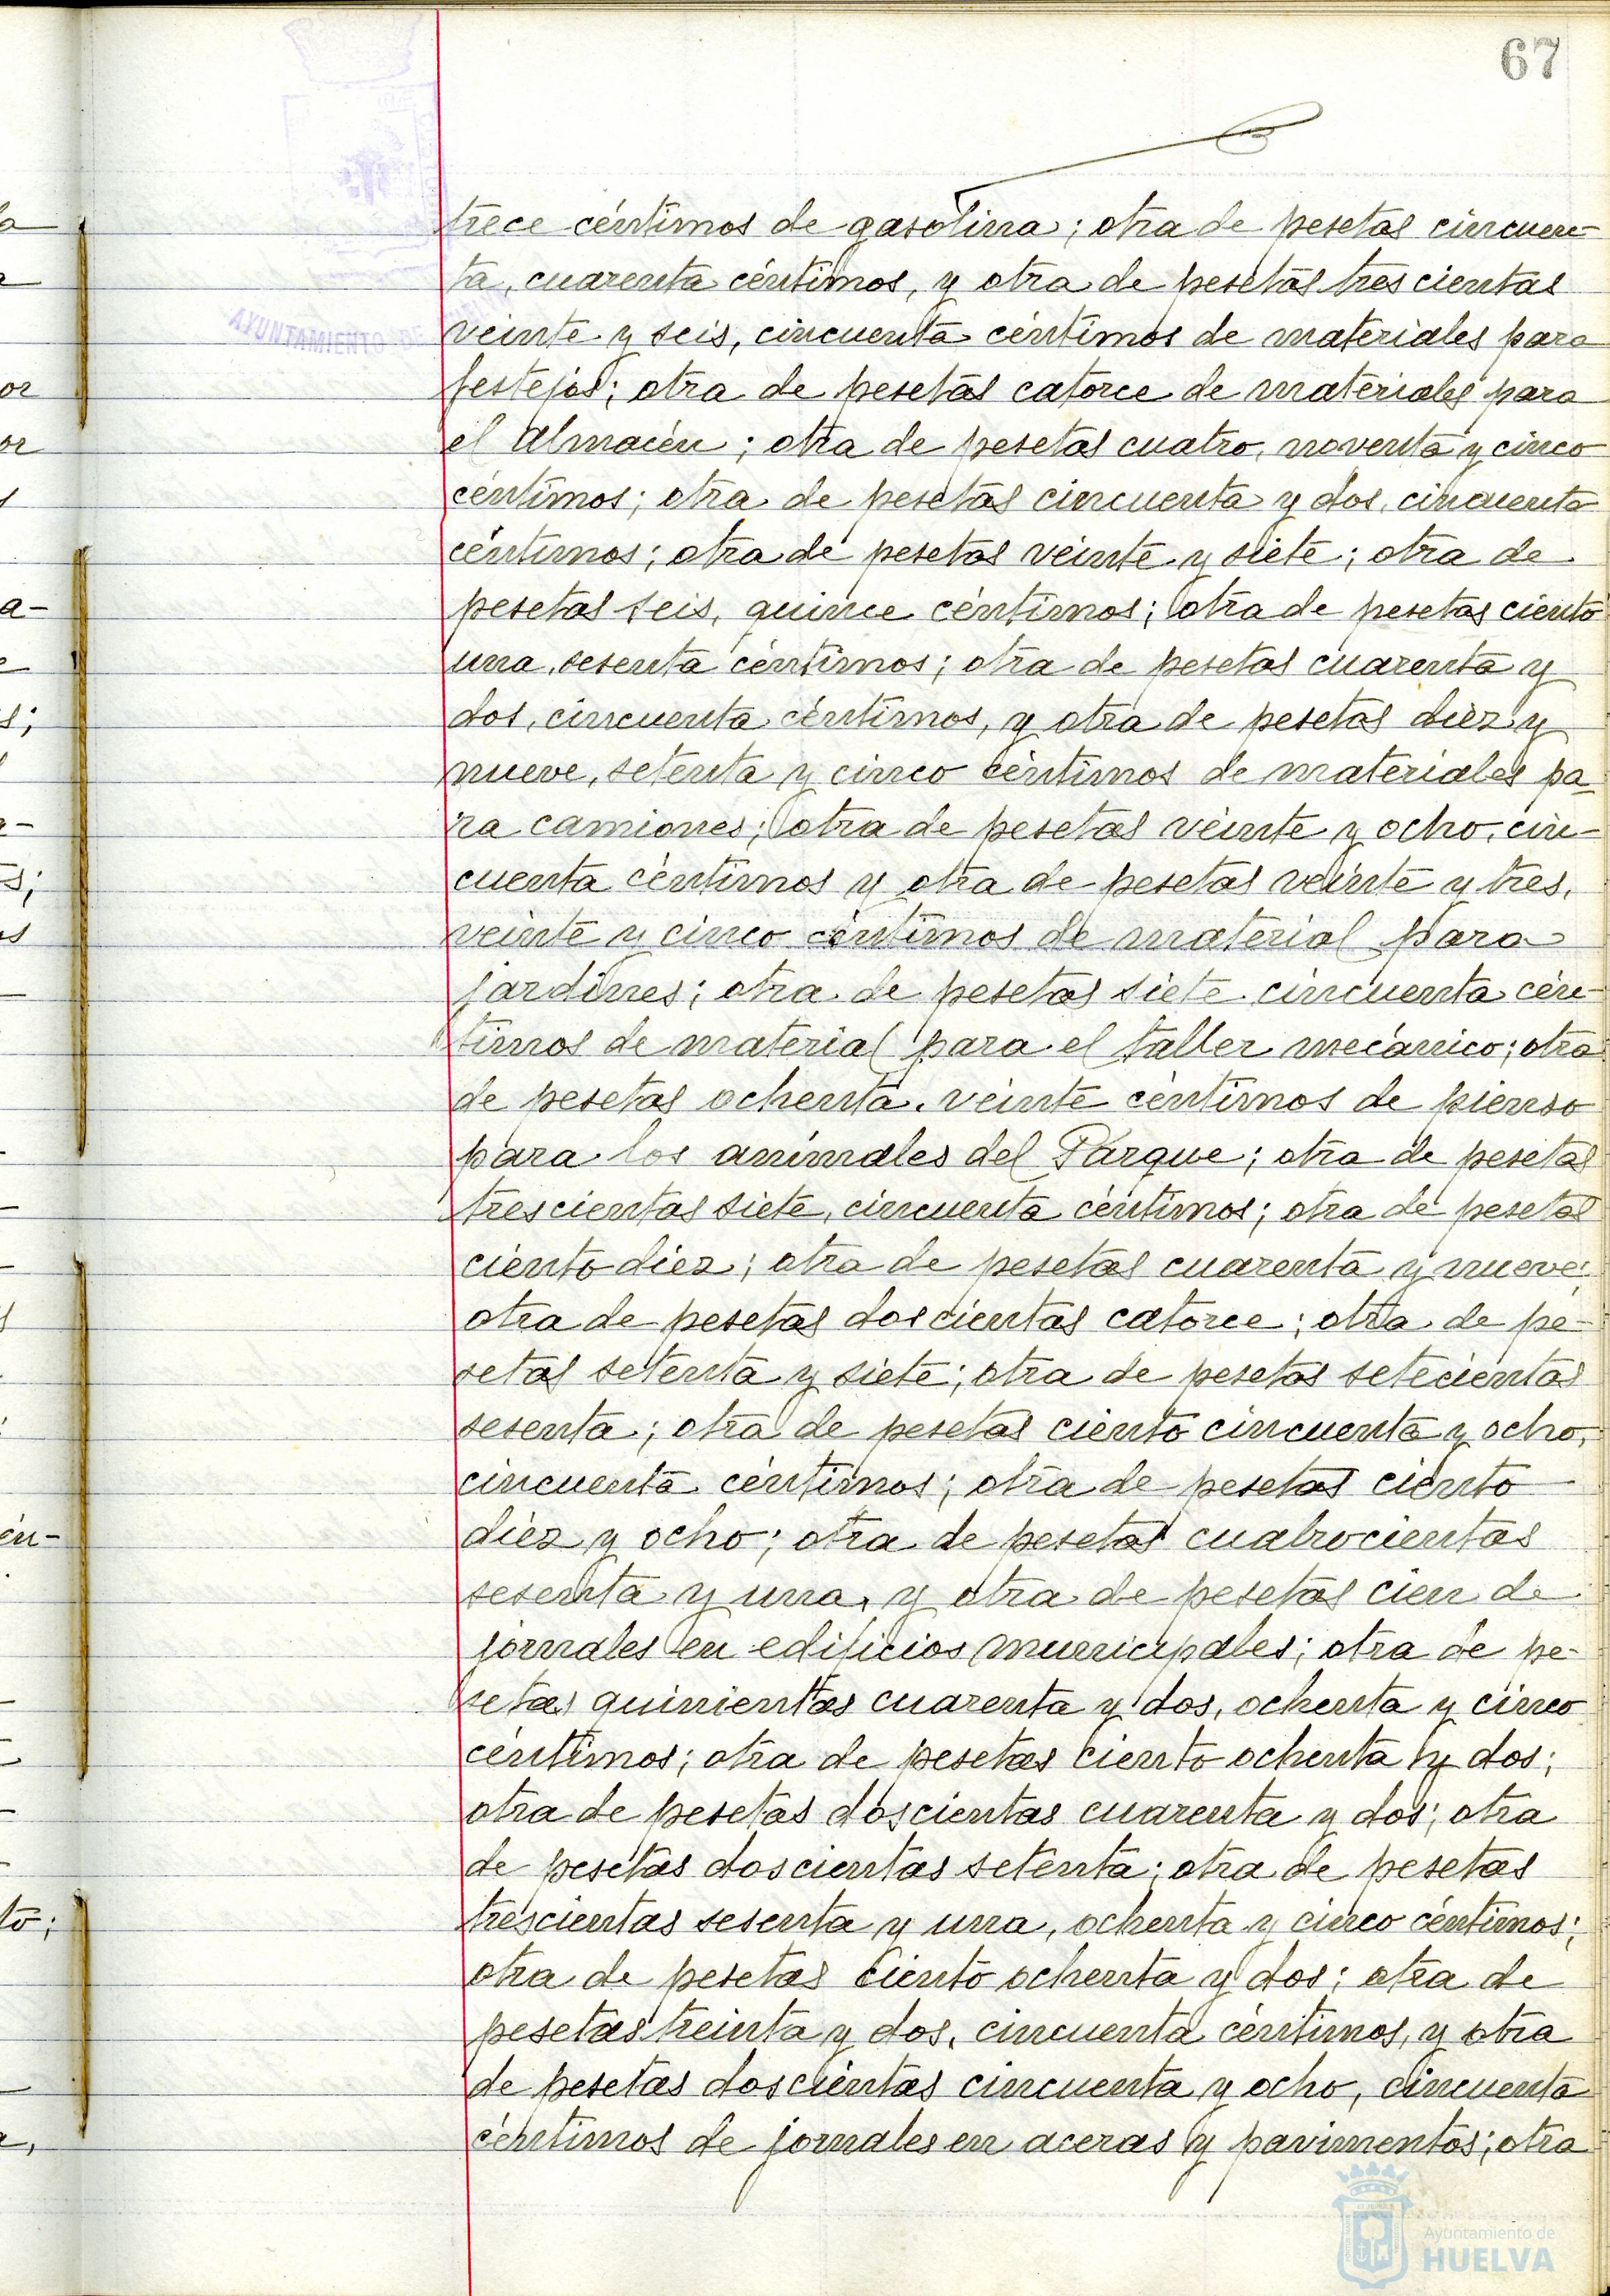 67
trece céntimos de gasolina; otra de pesetas cincuen-
ta, cuarenta céntimos, y otra de pesetas trescientas
AYUNTAMIENTO DE
veinte y seis, cincuenta céntimos de materiales para
festejos; otra de pesetas catorce de materiales para
el Almacén; otra de pesetas cuatro, noventa y cinco
céntimos; otra de pesetas cincuenta y dos, cincuenta
céntimos; otra de pesetas veinte y siete; otra de
pesetas seis, quince céntimos; otra de pesetas ciento
una, sesenta céntimos; otra de pesetas cuarenta y
dos, cincuenta céntimos, y otra de pesetas diez y
nueve, setenta y cinco céntimos de materiales pa-
ra camiones; otra de pesetas veinte y ocho, cin-
cuenta céntimos y otra de pesetas veinte y tres,
veinte y cinco céntimos de material para
jardines; otra de pesetas siete cincuenta cén-
timos de material para el taller mecánico; otra
de pesetas ochenta, veinte céntimos de pienso
para los animales del Parque; otra de pesetas
trescientas siete, cincuenta céntimos; otra de pesetas
ciento diez; otra de pesetas cuarenta y nueve;
otra de pesetas doscientas catorce; otra de pe-
setas setenta y siete; otra de pesetas setecientas
sesenta; otra de pesetas ciento cincuenta y ocho,
cincuenta céntimos; otra de pesetas ciento
diez y ocho; otra de pesetas cuatrocientas
sesenta y una, y otra de pesetas cien de
jornales en edificios municipales; otra de pe-
setas quinientas cuarenta y dos, ochenta y cinco
céntimos; otra de pesetas ciento ochenta y dos;
otra de pesetas doscientas cuarenta y dos; otra
de pesetas doscientas setenta; otra de pesetas
trescientas sesenta y una, ochenta y cinco céntimos;
otra de pesetas ciento ochenta y dos; otra de
pesetas treinta y dos, cincuenta céntimos, y otra
de pesetas doscientas cincuenta y ocho, cincuenta
céntimos de jornales en aceras y pavimentos; otra
Ayuntamiento de
HUELVA